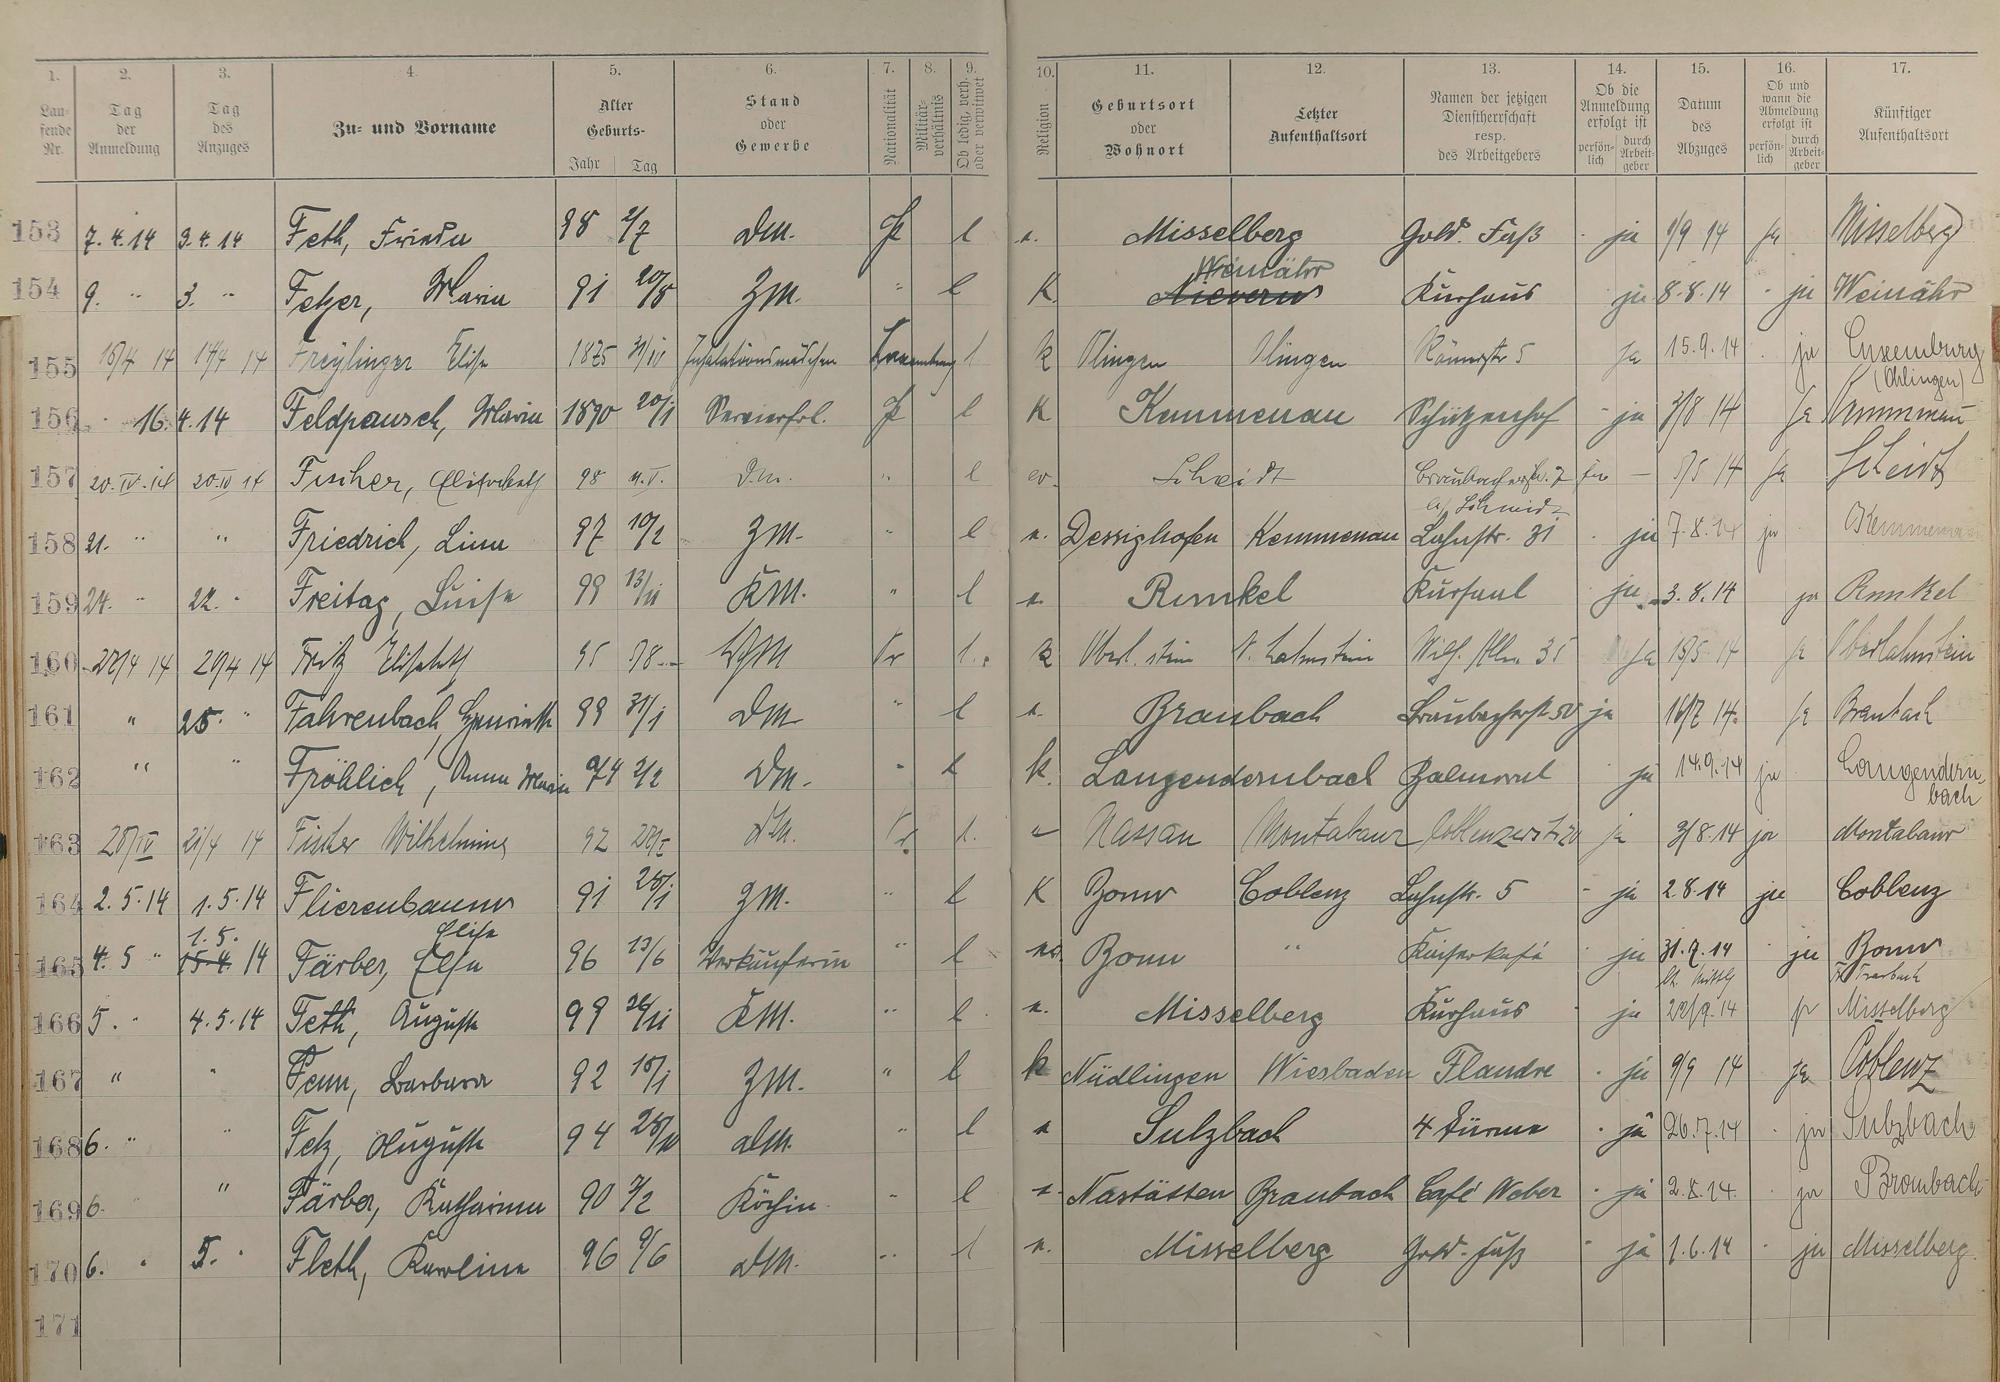 1. 2. 3. 4. 5. 6. 7. 8. 9. 10. 11. 12. 13. 14. 15. 16. 17.
Laufende Nr. Tag der Anmeldung Tag des Anzuges Zu- und Vorname Alter Geburts- Jahr Tag Stand oder Gewerbe Nationalität Militärverhältnis Ob ledig, verh. oder verwitwet Religion Geburtsort oder Wohnort Letzter Aufenthaltsort Namen der jetzigen Dienstherrschaft resp. des Arbeitgebers Ob die Anmeldung erfolgt ist persönlich durch Arbeitgeber Datum des Abzuges Ob und wann die Abmeldung erfolgt ist persönlich durch Arbeitgeber Künftiger Aufenthaltsort
153 7.4.14 3.4.14 Feth, Frieda 98 2/7 DM. l Misselberg Gold. Faß ja 1/9 14 ja Misselberg
Weinähr
154 9. " 3. " Fetzer, Maria 91 20/8 ZM. " l K. Nievern Kurhaus ja 8.8.14 ja Weinähr
155 14 14 Freylinger Elise 1875 Luxemburg l k Olingen Olingen Römerstr 5 ja 15.9.14 ja Luxemburg
(Ohlingen)
156 16.4.14 Feldpausch, Maria 1890 20/1 Servierfrl. l K Kemmenau Schützenhof ja 14 ja Kemmenau
157 20.IV.14 20.IV 14 Fischer, Elisabeth 98 " l ev. Scheidt Braubacherstr. 7 ja - 14 ja Scheidt
b/ Schmidt
158 21. " " Friedrich, Lina 97 10/2 ZM. " l Dessighofen Kemmenau Lahnstr. 31 ja 7.8.14 ja Kemmenau
159 24. " 22. " Freitag, Luise 99 13/11 KM. " l Runkel Kursaal ja 3.8.14 ja Runkel
160 14 14 Fritz Elisabeth 95 Pr l. k Oberl.stein N. Lahnstein Wilh. Allee 35 ja 14 ja Oberlahnstein
161 " 25. " Fahrenbach, Henriette 99 31/1 DM " l Braubach Braubacherstr. 50 ja 16/7 14. ja Braubach
162 " " Fröhlich, Anna Maria 94 2/2 DM. " l k. Langendernbach Balmoral ja 14.9.14 ja Langendern-
bach
163 14 Fischer Wilhelmine 92 DM. l. Nassau Montabaur Coblenzerstr 20 ja 3/8.14 ja Montabaur
164 2.5.14 1.5.14 Flierenbaum 91 28/1 ZM. " l K Bonn Coblenz Lahnstr. 5 ja 2.8.14 ja Coblenz
1.5. Elise
165 4.5 " 15.4. 14 Färber, Elsa 96 13/6 Verkäuferin " l Bonn " Kaiserkafé ja 31.9.14 ja Bonn
166 5. " 4.5.14 Feth, Auguste 99 KM. " l Misselberg Kurhaus ja 14 ja Misselberg
167 " " Fenn, Barbara 92 ZM. " l k Nüdlingen Wiesbaden Flandre ja 9/9 14 ja Coblenz
168 6. " " Fetz, Auguste 94 DM. " l Sulzbach 4 Türme ja 26.7.14 ja Sulzbach
169 6. " Färber, Katharina 90 Köchin " l Nastätten Braubach Café Weber ja 2.8.14. ja Braubach
170 6. " 5. " Fleth, Karoline 96 DM. " l Misselberg Gold. Faß ja 1.6.14 ja Misselberg.
171